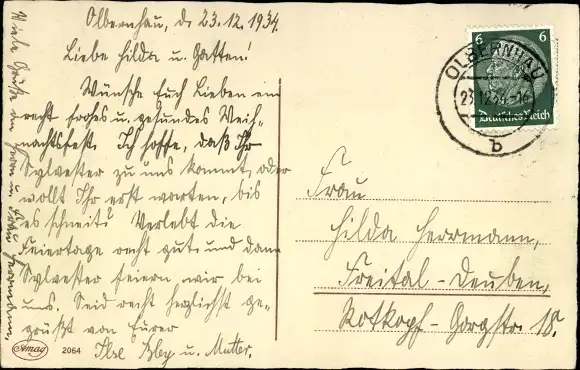 Olbernhau, d. 23.12.1934.
Liebe Hilda u. Gatten!
Wünsche Euch Lieben ein
recht frohes u. gesundes Weih-
nachtsfest. Ich hoffe, daß Ihr
Sylvester zu uns kommt, oder
wollt Ihr erst warten, bis
es schneit? Verlebt die
Feiertage recht gut und dann
Sylvester feiern wir bei
uns. Seid recht herzlichst ge-
grüßt von Eurer
Ilse u. Mutter.
Viele Grüße an Herrn u. Frau Herrmann.
Amag 2064
6 6
Deutsches Reich
OLBERNHAU
23.12.34.-16
b
Frau
Hilda Herrmann,
Freital-Deuben,
Rotkopf-Görgstr. 18a